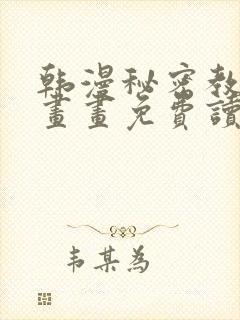 韩漫秘密教
畫畫免費讀
韦某为